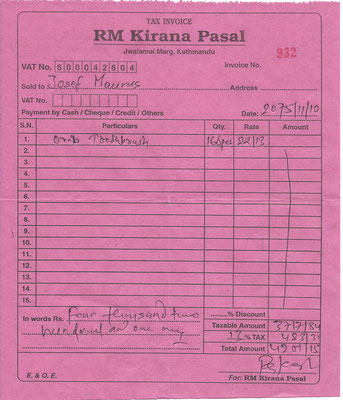 TAX INVOICE
RM Kirana Pasal
Jwalamai Marg, Kathmandu
932
VAT No. 600042604 Invoice No.
Sold to Josef Maurus Address
VAT No.
Payment by Cash / Cheque / Credit / Others Date: 2075/11/10
S.N. Particulars Qty. Rate Amount
1. Toothbrush 22/13
2.
3.
4.
5.
6.
7.
8.
9.
10.
11.
12.
13.
14.
15.
% Discount
In words Rs. four thousand two Taxable Amount
hundred an one only 13 % TAX 483/31
Total Amount 4201/15
E. & O. E. For: RM Kirana Pasal